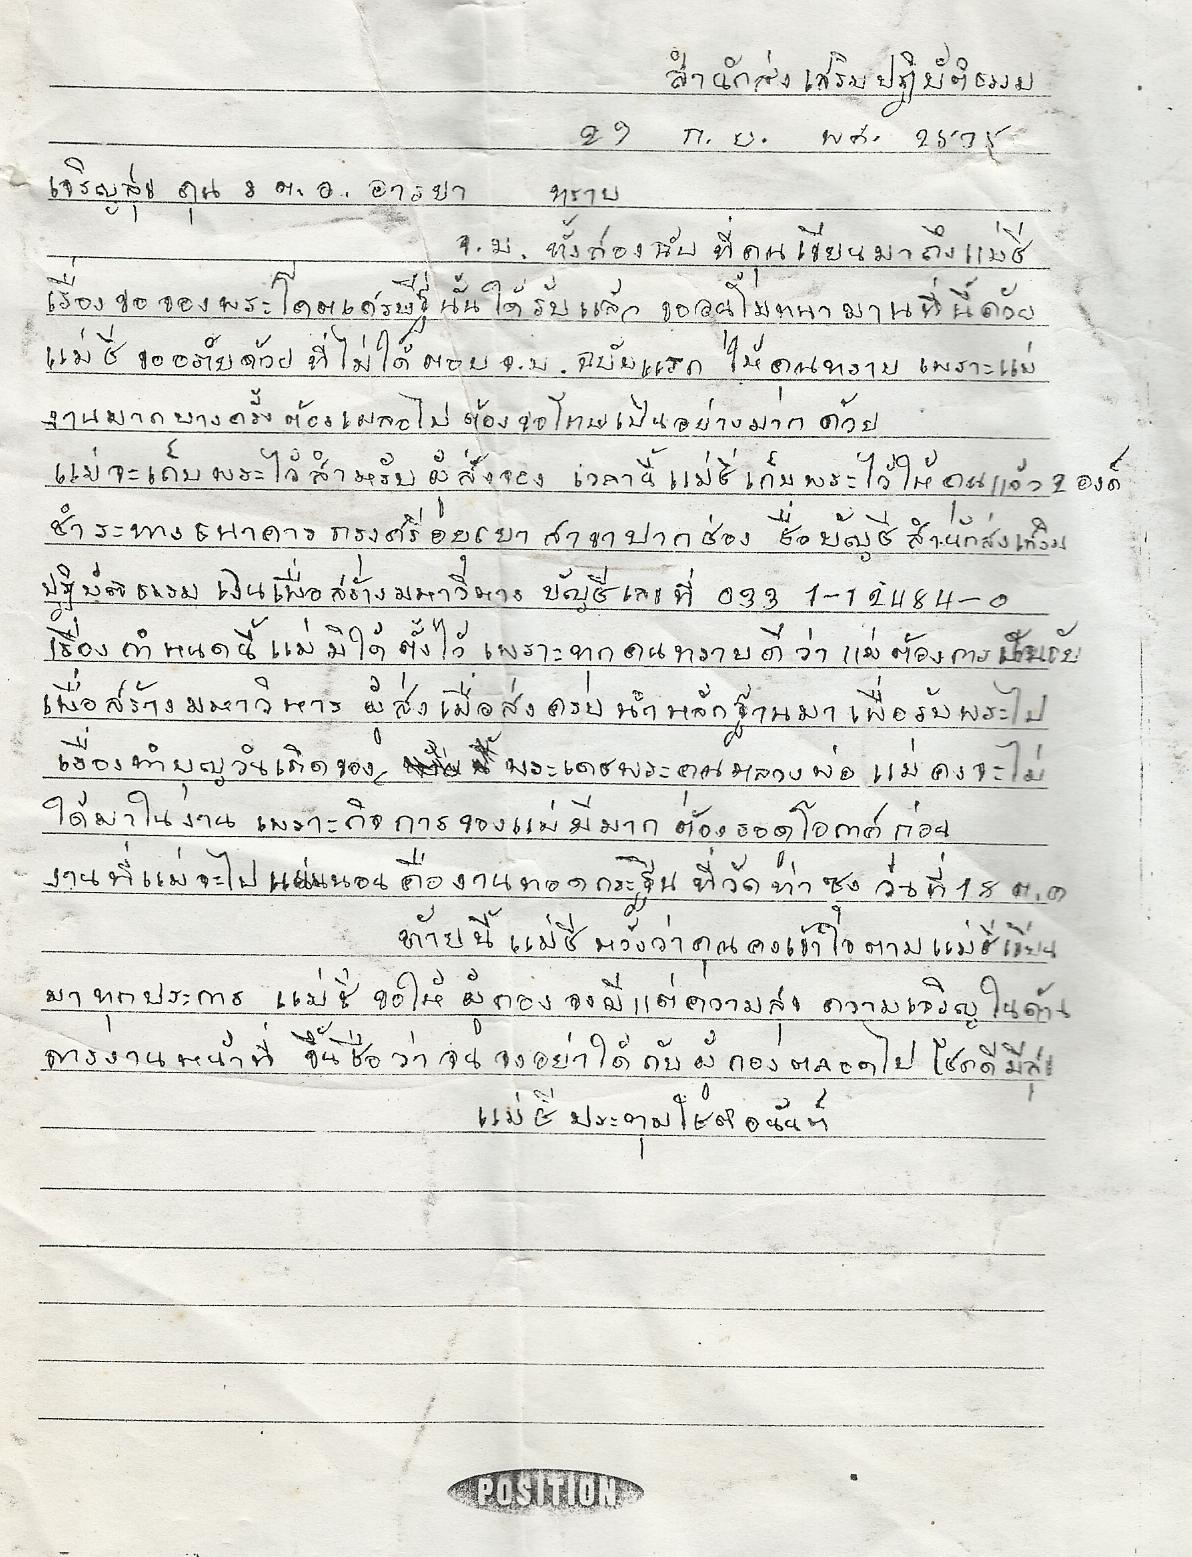 สำนักส่งเสริมปฏิบัติธรรม
29 ก.ย. พศ. 2535
เจริญสุข คุณ ร ต.อ. อารยา ทราบ
จ.ม. ทั้งสองฉบับ ที่คุณเขียนมาถึงแม่ชี
เรื่องขอจองพระโคตรเศรษฐีนั้นได้รับแล้ว ขออนุโมทนามานที่นี้ด้วย
แม่ชีขออภัยด้วย ที่ไม่ได้ตอบ จ.ม. ฉบับแรก ให้คุณทราบ เพราะแม่
งานมากบางครั้งต้องเผลอไป ต้องขอโทษเป็นอย่างมาก ด้วย
แม่จะเก็บพระไว้สำหรับผู้สั่งจอง เวลานี้แม่ชีเก็บพระไว้ให้คุณแล้ว 2 องค์
ชำระทางธนาคารกรุงศรีอยุธยา สาขาปากช่อง ชื่อบัญชีสำนักส่งเสริม
ปฏิบัติธรรม เงินเพื่อสร้างมหาวิหาร บัญชีเลขที่ 033 1-12484-0
เรื่องกำหนดนี้แม่มิได้ตั้งไว้ เพราะทุกคนทราบดีว่า แม่ต้องการ
เพื่อสร้างมหาวิหาร ผู้ส่งเมื่อส่งครบนำหลักฐานมาเพื่อรับพระไป
เรื่องทำบุญวันเกิดของ พระเดชพระคุณหลวงพ่อ แม่คงจะไม่
ได้มาในงาน เพราะกิจการของแม่มีมาก ต้องรอดูโอกาสก่อน
งานที่แม่จะไปแน่นอนคืองานทอดกระฐิน ที่วัดท่าซุง วันที่ 18 ต.ค
ท้ายนี้ แม่ชีหวังว่าคุณคงเข้าใจตามแม่ชีเขียน
มาทุกประการ แม่ชีขอให้ผู้กองจงมีแต่ความสุข ความเจริญในด้าน
การงานหน้าที่ ขึ้นชื่อว่าจนจงอย่าได้กับผู้กองตลอดไป โชคดีมีสุข
แม่ชีประทุมโชติอนันท์
POSITION